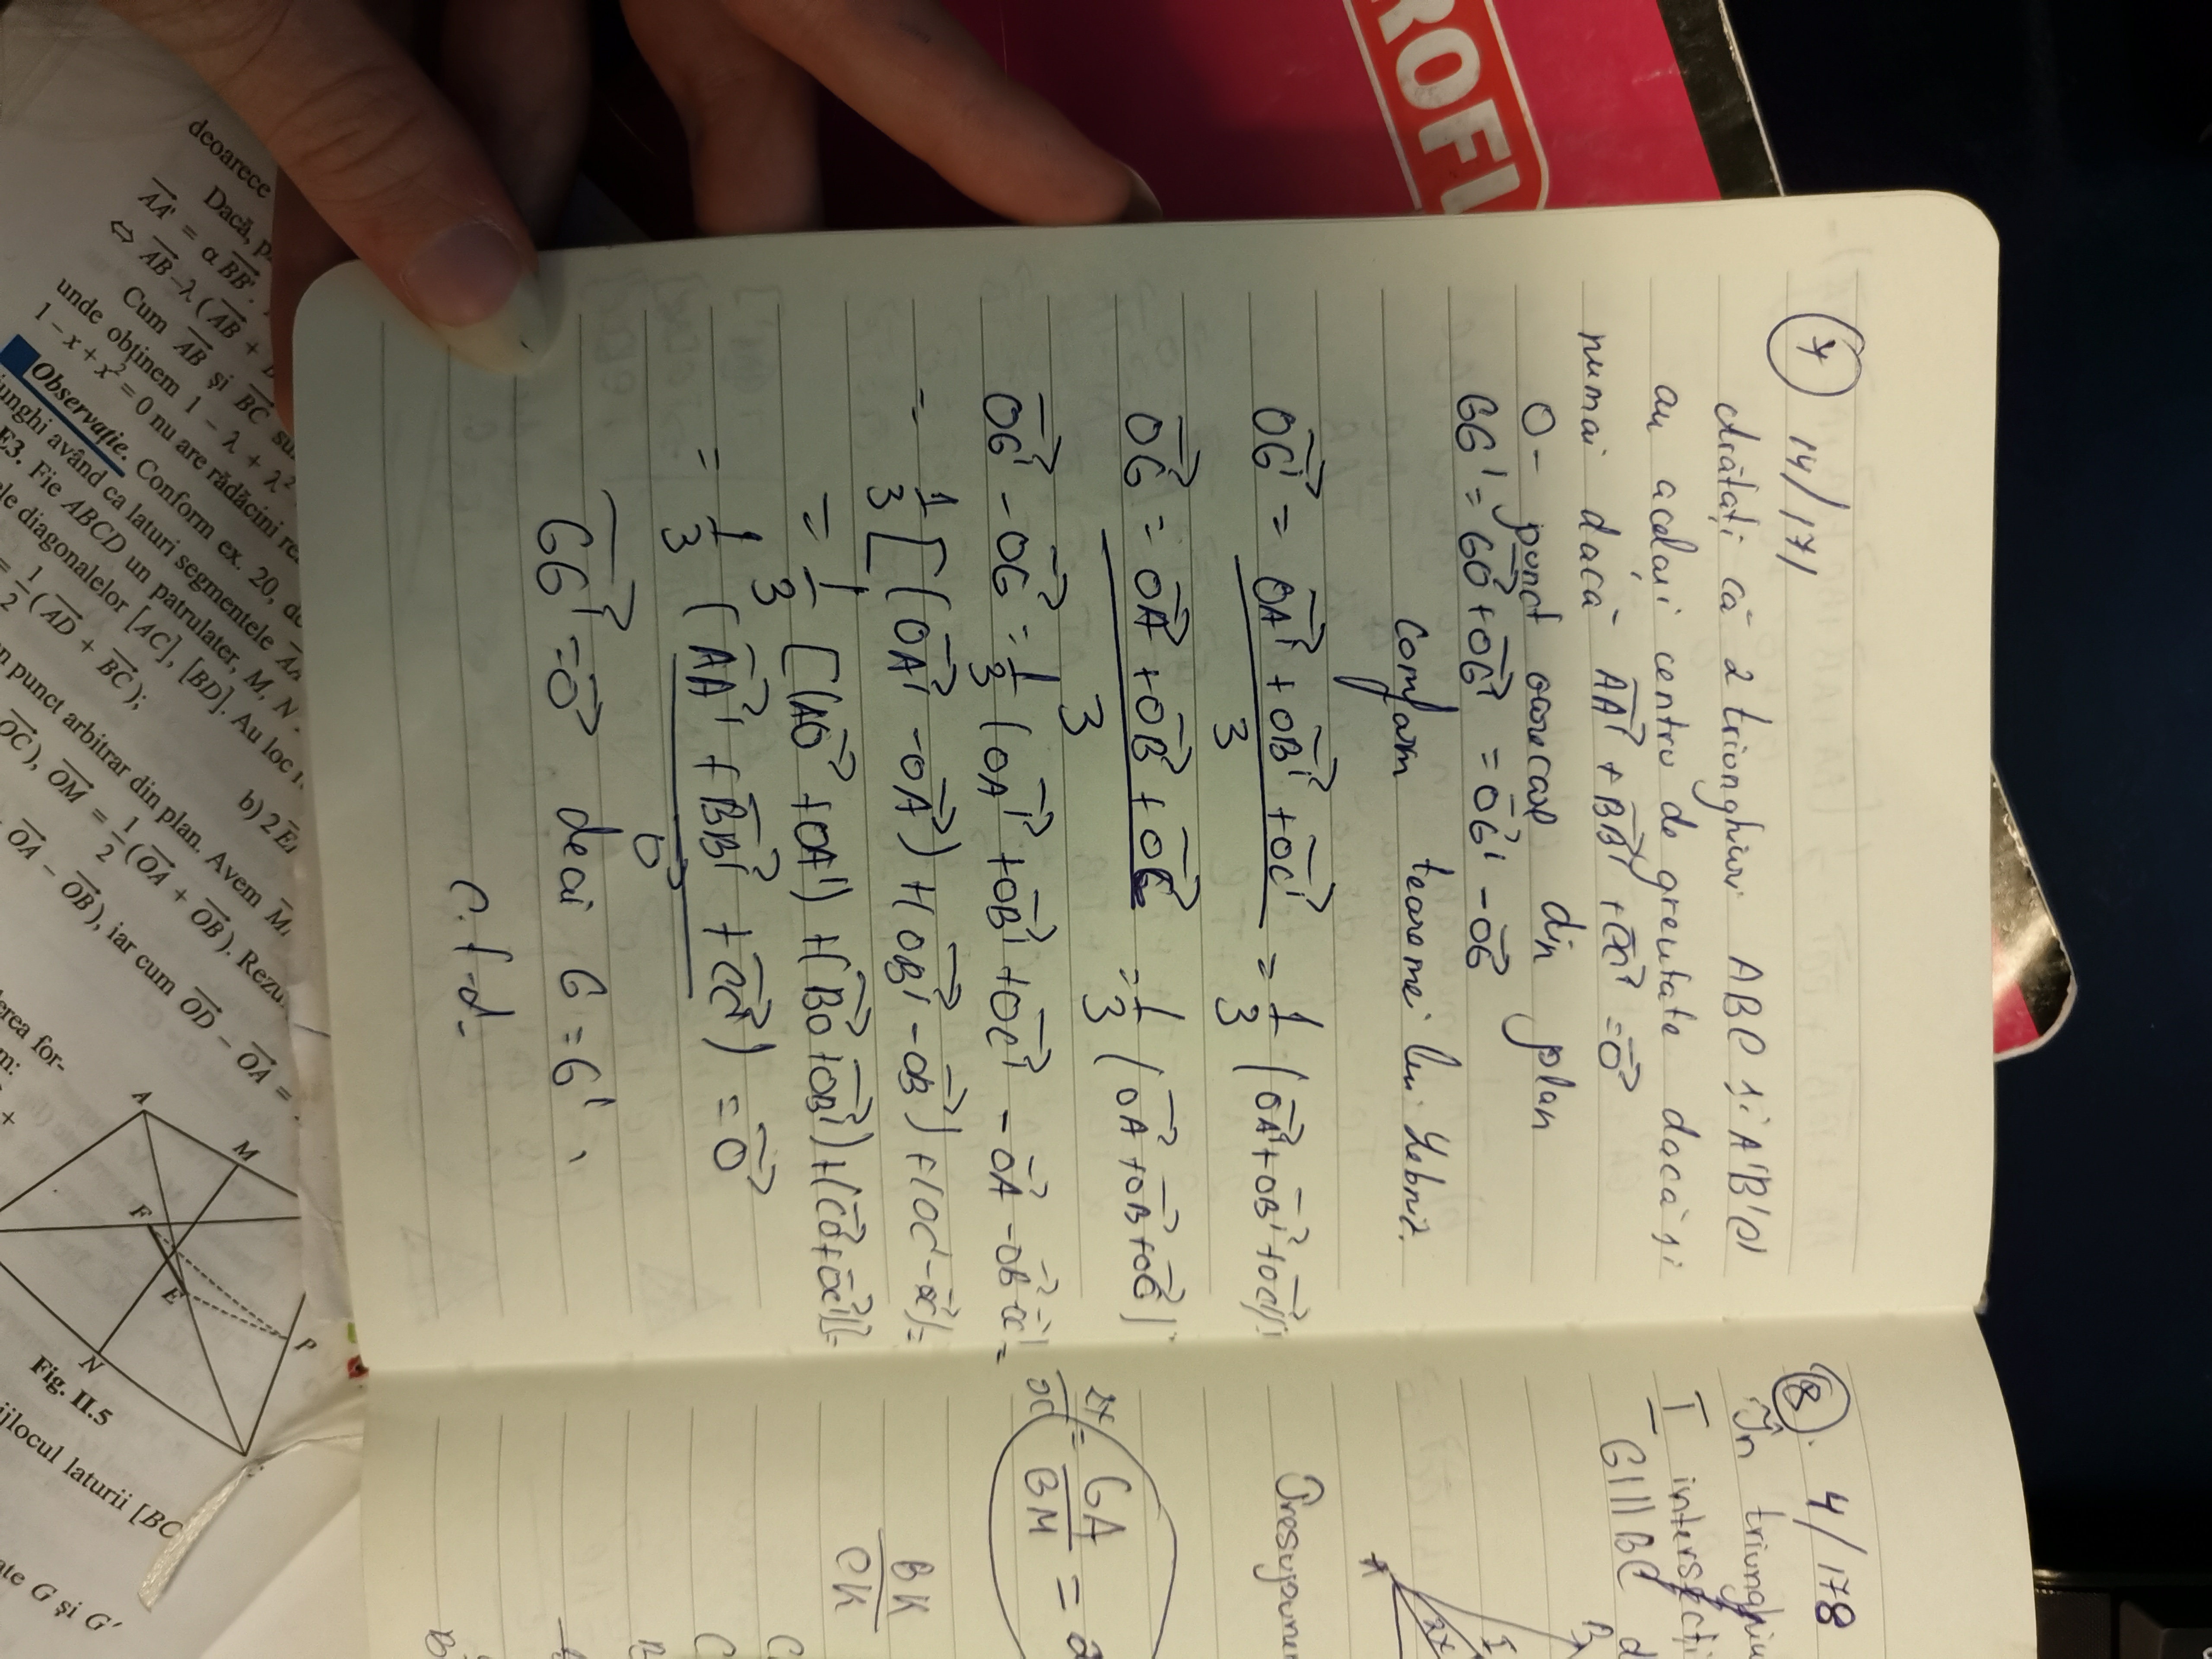 ROFI
7 14/171
Arătați că 2 triunghiuri ABC și A'B'C'
au același centru de greutate dacă și
numai dacă AA' + BB' + CC' = 0
O - punct oarecare din plan
GG' = GO + OG' = OG' - OG
Conform teoremei lui Leibniz
OG' = OA' + OB' + OC' / 3 = 1/3 (OA' + OB' + OC')
OG = OA + OB + OC / 3 = 1/3 (OA + OB + OC)
OG' - OG = 1/3 (OA' + OB' + OC' - OA - OB - OC) =
= 1/3 [(OA' - OA) + (OB' - OB) + (OC' - OC)] =
= 1/3 [(AO + OA') + (BO + OB') + (CO + OC')] =
= 1/3 (AA' + BB' + CC') = 0
0
GG' = 0 deci G = G'
c.f.d.
8. 4/178
În triunghiu
I intersecți
GI || BC d
Presupunem
GA / BM = 2
BK / CK
deoarece
Dacă, p
AA' = α BB'.
⇔ AB - λ (AB +
Cum AB și BC su
unde obținem 1 - λ + λ²
1 - x + x² = 0 nu are rădăcini re
Observație. Conform ex. 20, d
unghi având ca laturi segmentele
E3. Fie ABCD un patrulater, M, N
ele diagonalelor [AC], [BD]. Au loc
= 1/2 (AD + BC);
b) 2
n punct arbitrar din plan. Avem
OC), OM = 1/2 (OA + OB). Rezu
OA - OB), iar cum OD - OA =
erea for-
m:
+
A
M
F
E
P
N
Fig. II.5
ijlocul laturii [BC
ate G și G'